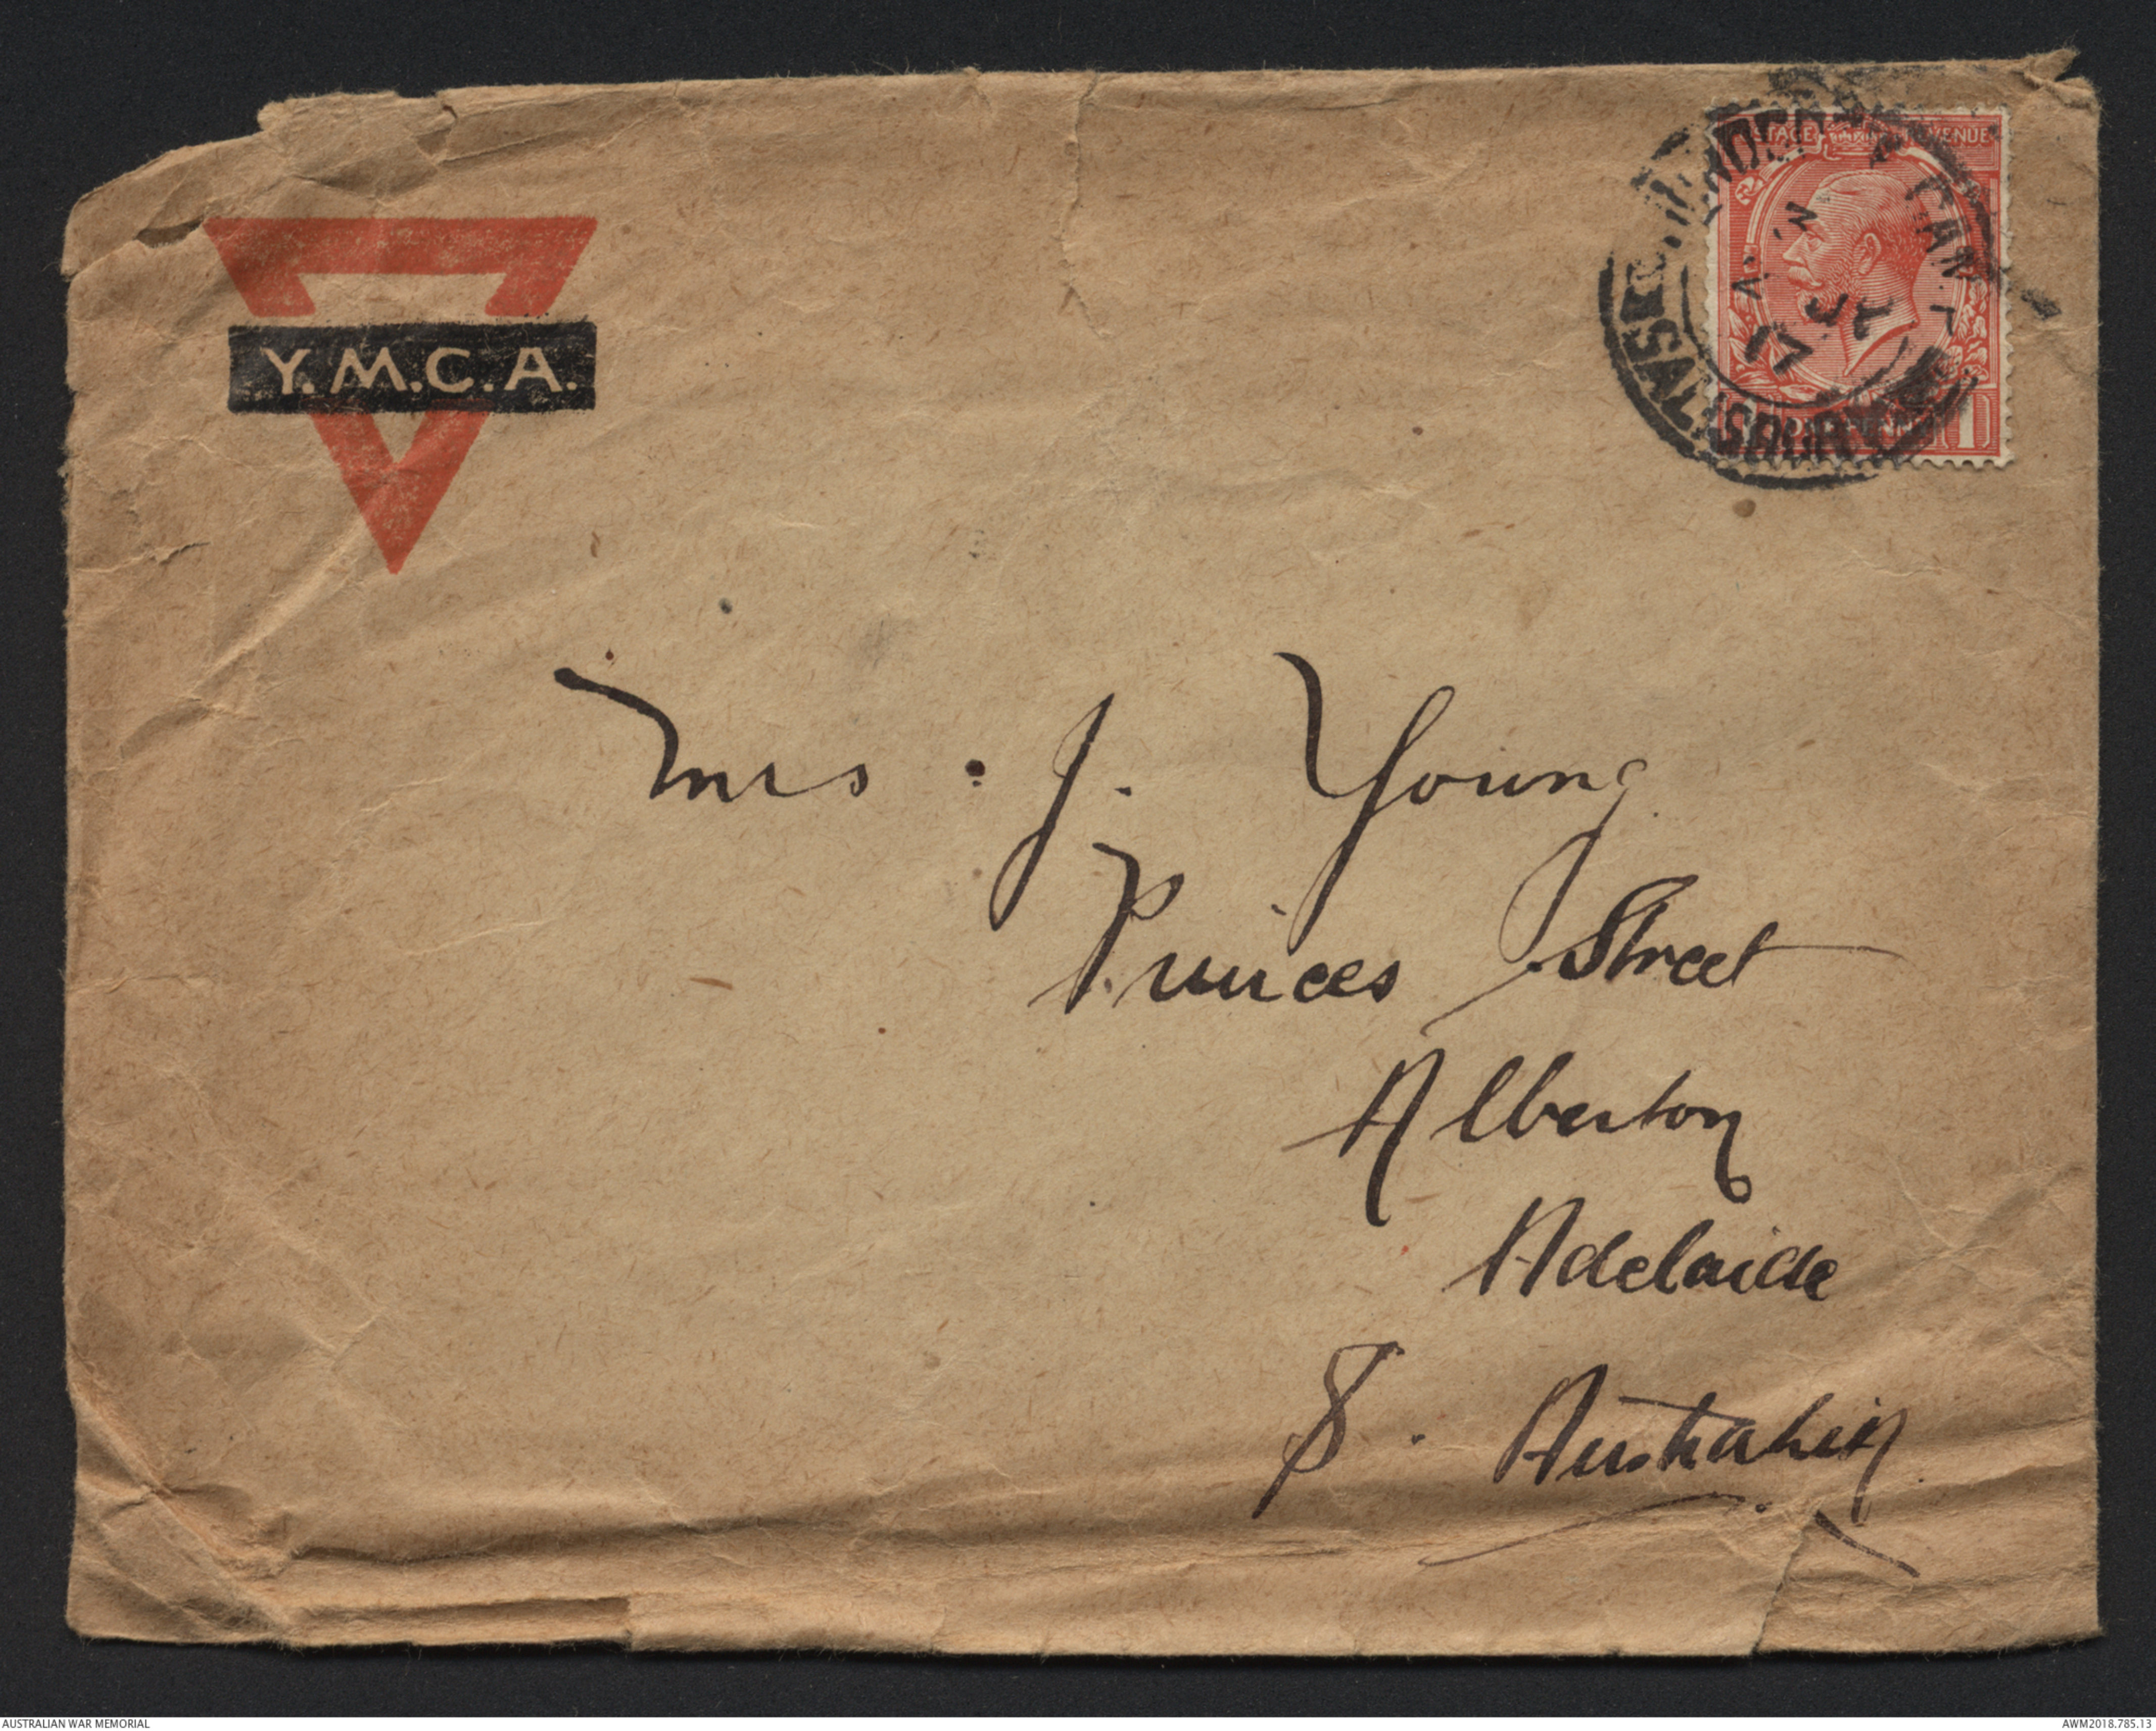 Y.M.C.A.
POSTAGE REVENUE
CAMP
17
SALISBURY
ONE PENNY 1
Mrs. J. Young
Princes Street
Alberton
Adelaide
S. Australia
AUSTRALIAN WAR MEMORIAL
AWM2018.785.13